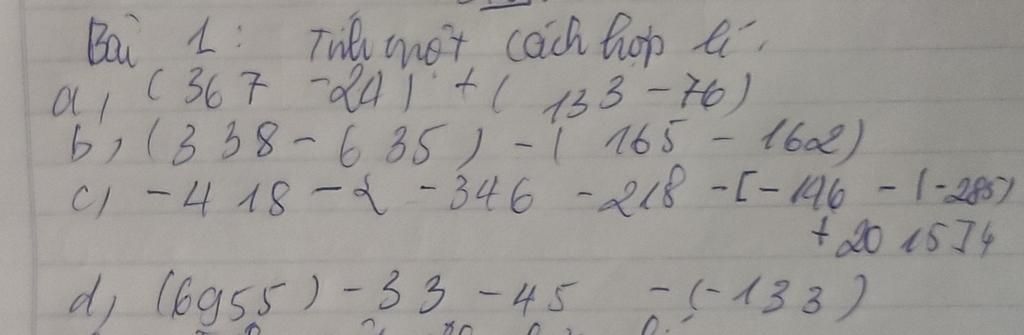 Bài 1: Tính một cách hợp lí.
a, (367 - 24) + ( 133 - 76)
b, (338 - 635) - ( 165 - 162)
c, - 418 - { - 346 - 218 - [ - 146 - ( - 285)
+ 2015]}
d, (6955) - 33 - 45 - (- 133)